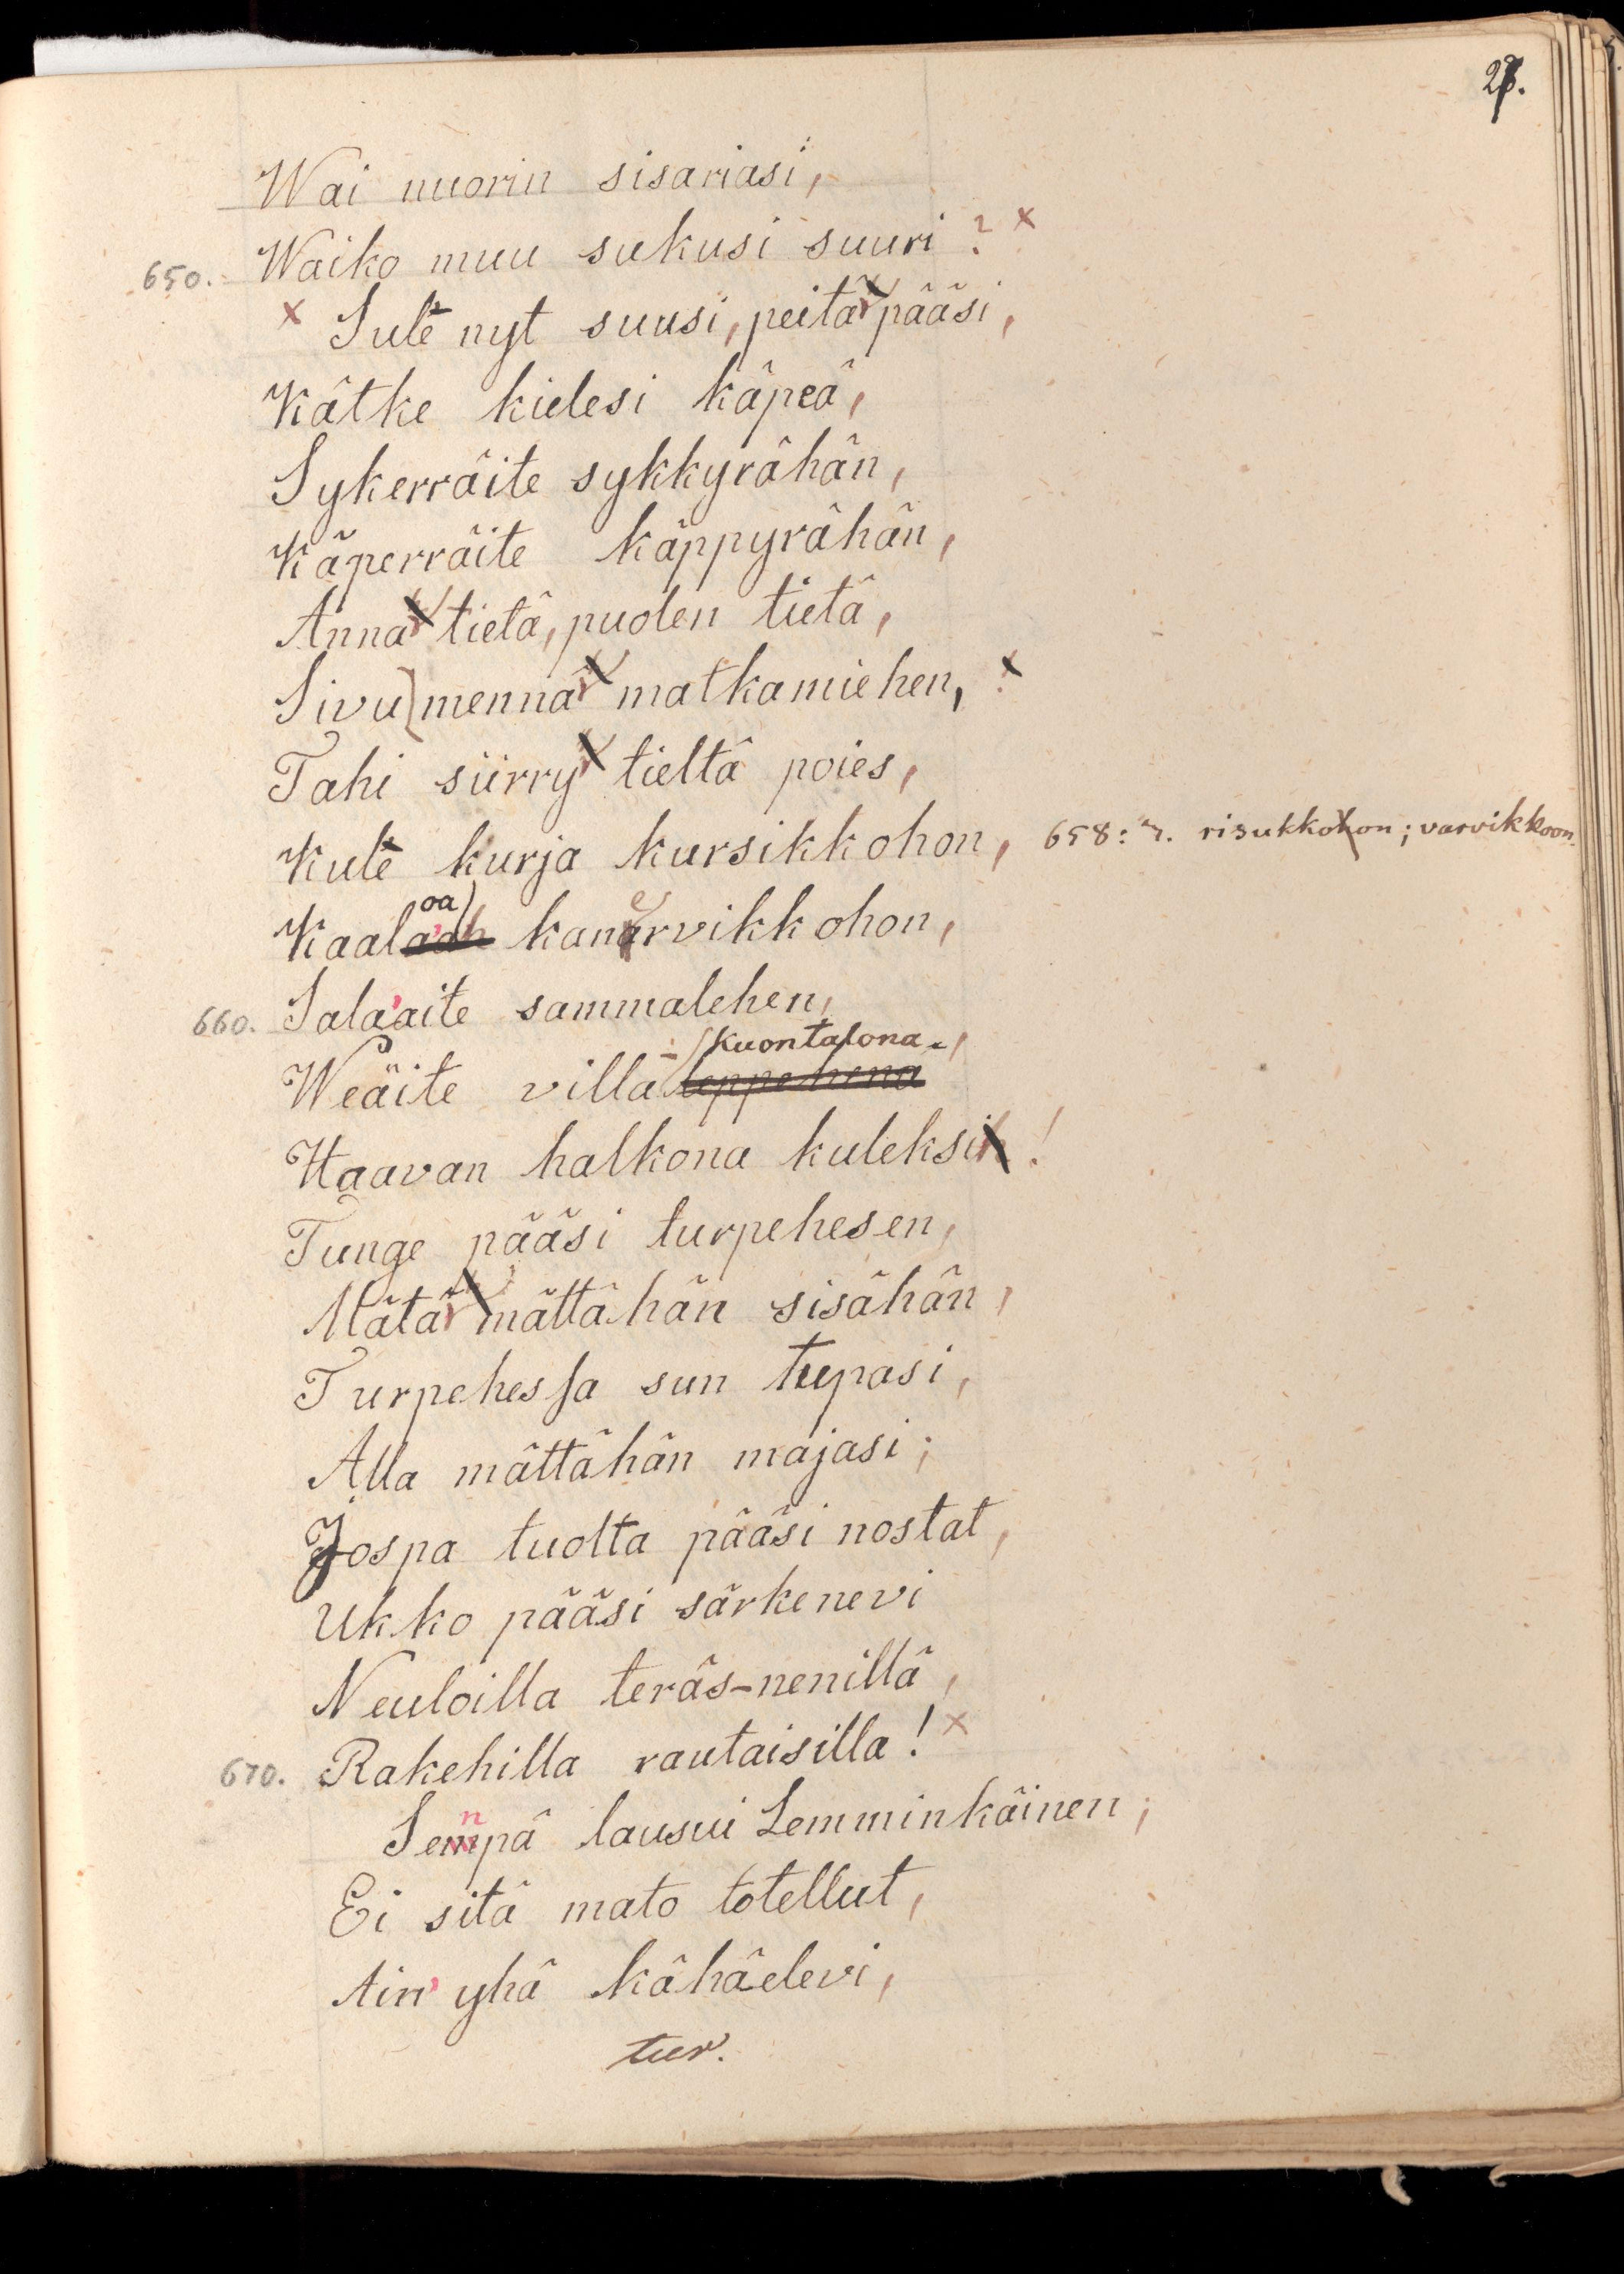 27.
Wai nuorin sisariasi,
650. Waiko muu sukusi suuri? x
x Sule nyt suusi, peitä pääsi,
Kätke kielesi käpeä,
Sykerräite sykkyrähän,
Käperräite käppyrähän,
Anna tietä, puolen tietä,
Sivu mennä matkamiehen, x
Tahi siirry tieltä poies,
Kule kurja kursikkohon, 658: r. risukkohon; varvikkoon.
Kaaloa kanervikkohon,
660. Salaaite sammalehen,
kuontalona,
Weäite villa leppehenä
Haavan halkona kuleksi!
Tunge pääsi turpehesen,
Mätä mättähän sisähän,
Turpehessa sun tupasi,
Alla mättähän majasi;
Jospa tuolta pääsi nostat,
Ukko pääsi särkenevi
Neuloilla teräs-nenillä,
670. Rakehilla rautaisilla! x
Senpä lausui Lemminkäinen;
Ei sitä mato totellut,
Ain' yhä kähäelevi,